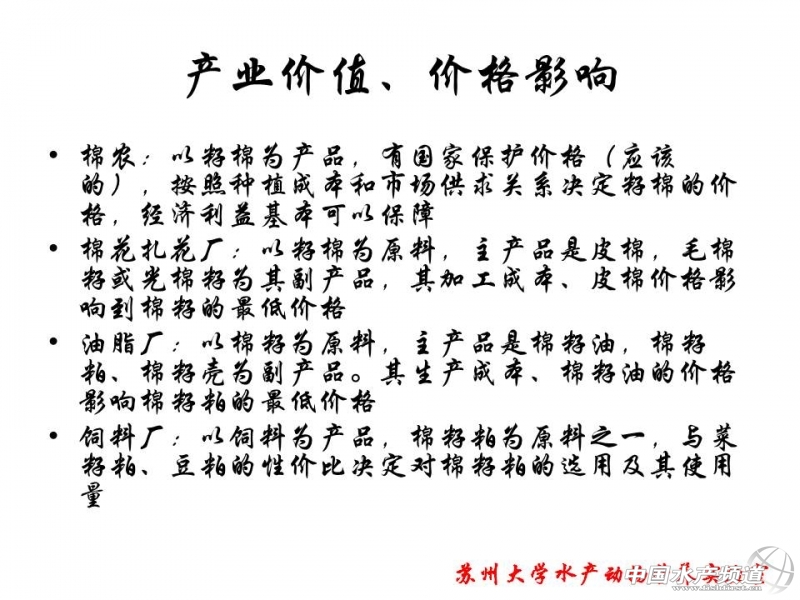 产业价值、价格影响
• 棉农：以籽棉为产品，有国家保护价格（应该
的），按照种植成本和市场供求关系决定籽棉的价
格，经济利益基本可以保障
• 棉花扎花厂：以籽棉为原料，主产品是皮棉，毛棉
籽或光棉籽为其副产品，其加工成本、皮棉价格影
响到棉籽的最低价格
• 油脂厂：以棉籽为原料，主产品是棉籽油，棉籽
粕、棉籽壳为副产品。其生产成本、棉籽油的价格
影响棉籽粕的最低价格
• 饲料厂：以饲料为产品，棉籽粕为原料之一，与菜
籽粕、豆粕的性价比决定对棉籽粕的选用及其使用
量
苏州大学水产动物
中国水产频道
www.fishfirst.cn